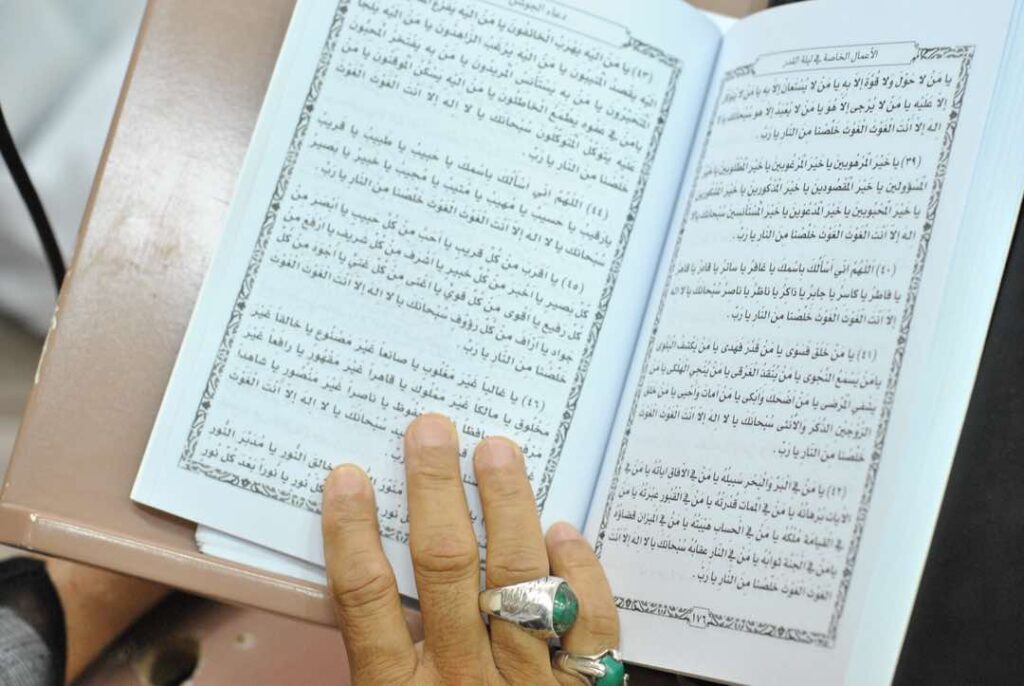 الأعمال الخاصة في ليلة القدر
يا مَنْ لا حَوْلَ ولا قُوَّةَ إلاّ بِهِ يا مَنْ لا يُسْتَعانُ إلا به يا مَنْ لا يُتَوَكَّلُ
إلا عليه يا مَنْ لا يُرْجى إلا هُوَ يا مَنْ لا يُعْبَدُ إلا هو سُبْحانَكَ يا لا
اله إلا أنْتَ الْغَوْثَ الْغَوْثَ خَلِّصْنا من النار يا رَبِّ .
(٣٩) يا خَيْرَ الْمَرْهُوبِينَ يا خَيْرَ الْمَرْغُوبينَ يا خَيْرَ الْمَطْلُوبينَ يا خَيْرَ
الْمَسؤُولينَ يا خَيْرَ الْمَقْصُودينَ يا خَيْرَ الْمَذكورينَ يا خَيْرَ الْمَشْكُورينَ
يا خَيْرَ الْمَحْبُوبينَ يا خَيْرَ الْمَدْعُوّينَ يا خَيْرَ الْمُسْتَأنسينَ سُبْحانَكَ يا لا
اله إلا أنْتَ الْغَوْثَ الْغَوْثَ خَلِّصْنا من النار يا رَبِّ .
(٤٠) اَللّهُمَّ انّي اَسْاَلُكَ بِاسْمِكَ يا غافِرُ يا ساتِرُ يا قادِرُ يا قاهِرُ
يا فاطِرُ يا كاسِرُ يا جابِرُ يا ذاكِرُ يا ناظِرُ يا ناصِرُ سُبْحانَكَ يا لا اله
إلا أنْتَ الْغَوْثَ الْغَوْثَ خَلِّصْنا من النار يا رَبِّ .
(٤١) يا مَنْ خَلَقَ فَسَوّى يا مَنْ قَدَّرَ فَهَدى يا مَنْ يَكْشِفُ الْبَلْوى
يا مَنْ يَسْمَعُ النَّجْوى يا مَنْ يُنْقِذُ الْغَرْقى يا مَنْ يُنْجِي الْهَلْكى يا مَنْ
يَشْفِي الْمَرْضى يا مَنْ اَضْحَكَ وَاَبْكى يا مَنْ اَماتَ وَاَحْيى يا مَنْ خَلَقَ
الزَّوْجَيْنِ الذَّكَرَ وَالأُنْثى سُبْحانَكَ يا لا اله إلا أنْتَ الْغَوْثَ الْغَوْثَ
خَلِّصْنا من النار يا رَبِّ .
(٤٢) يا مَنْ في الْبَرِّ وَالْبَحْرِ سَبيلُهُ يا مَنْ في الآفاقِ آياتُهُ يا مَنْ في
الآياتِ بُرْهانُهُ يا مَنْ في الْمَماتِ قُدْرَتُهُ يا مَنْ في الْقُبُورِ عِبْرَتُهُ يا مَنْ
في الْقِيامَةِ مُلْكُهُ يا مَنْ في الْحِسابِ هَيْبَتُهُ يا مَنْ في الْميزانِ قَضاؤُهُ
يا مَنْ في الْجَنَّةِ ثَوابُهُ يا مَنْ في النارِ عِقابُهُ سُبْحانَكَ يا لا اله إلا أنْتَ
الْغَوْثَ الْغَوْثَ خَلِّصْنا من النار يا رَبِّ .
١٧٦
دعاء الجوشن
(٤٣) يا مَنْ الَيْهِ يَهْرَبُ الْخائِفُونَ يا مَنْ الَيْهِ يَفْزَعُ
الَيْهِ يَقْصِدُ الْمُنيبُونَ يا مَنْ الَيْهِ يَرْغَبُ الزّاهِدُونَ يا مَنْ الَيْهِ يَلْجَأُ
الْمُتَحَيِّرُونَ يا مَنْ به يَسْتَأْنِسُ الْمُريدُونَ يا مَنْ به يَفْتَخِرُ الْمُحِبُّونَ
يا مَنْ في عَفْوِهِ يَطْمَعُ الْخاطِئُونَ يا مَنْ الَيْهِ يَسْكُنُ الْمُوقِنُونَ يا مَنْ
عَلَيْهِ يَتَوَكَّلُ الْمُتَوَكِّلُونَ سُبْحانَكَ يا لا اله إلا أنْتَ الْغَوْثَ الْغَوْثَ
خَلِّصْنا من النار يا رَبِّ .
(٤٤) اللهُمَّ انّي اَسْأَلُكَ باسمك يا حَبيبُ يا طَبيبُ يا قَريبُ
يا رَقيبُ يا حَسيبُ يا مُهيبُ يا مُثيبُ يا مُجيبُ يا خَبيرُ يا بَصيرُ
سُبْحانَكَ يا لا اله إلا أنْتَ الْغَوْثَ الْغَوْثَ خَلِّصْنا من النار يا رَبِّ .
(٤٥) يا اَقْرَبَ مِنْ كُلِّ قَريبٍ يا اَحَبَّ مِنْ كُلِّ حَبيبٍ يا اَبْصَرَ مِنْ
كُلِّ بَصيرٍ يا اَخْبَرَ مِنْ كُلِّ خَبيرٍ يا اَشْرَفَ مِنْ كُلِّ شَريفٍ يا اَرْفَعَ مِنْ
كُلِّ رَفيعٍ يا اَقْوى مِنْ كُلِّ قَوِيٍّ يا اَغْنى مِنْ كُلِّ غَنِيٍّ يا اَجْوَدَ مِنْ كُلِّ
جَوادٍ يا اَرْاَفَ مِنْ كُلِّ رَؤُوفٍ سُبْحانَكَ يا لا اله إلا أنْتَ الْغَوْثَ الْغَوْثَ
خَلِّصْنا من النار يا رَبِّ .
(٤٦) يا غالِباً غَيْرَ مَغْلُوبٍ يا صانِعاً غَيْرَ مَصْنُوعٍ يا خالِقاً غَيْرَ
مَخْلُوقٍ يا مالِكاً غَيْرَ مَمْلُوكٍ يا قاهِراً غَيْرَ مَقْهُورٍ يا رافِعاً غَيْرَ
يا ناصِراً غَيْرَ مَنْصُورٍ يا شاهِداً
سُبْحانَكَ يا لا اله إلا أنْتَ الْغَوْثَ
النُّورِ يا مُدَبِّرَ النُّورِ
كُلِّ نُورٍ يا نُوراً بَعْدَ كُلِّ نُورٍ